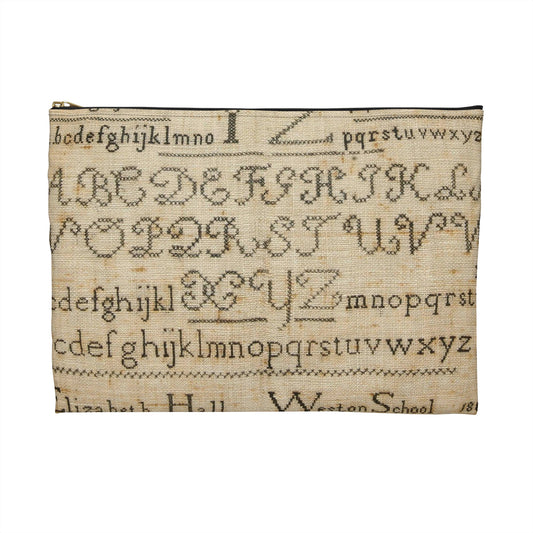 bcdefghijklmno Y Z pqrstuvwxyz
ABCDEFGHIJKL
NOPQRSTUVW
cdefghijkl XYZ mnopqrst
cdefghijklmnopqrstuvwxyz
Elizabeth Hall Weston School 181